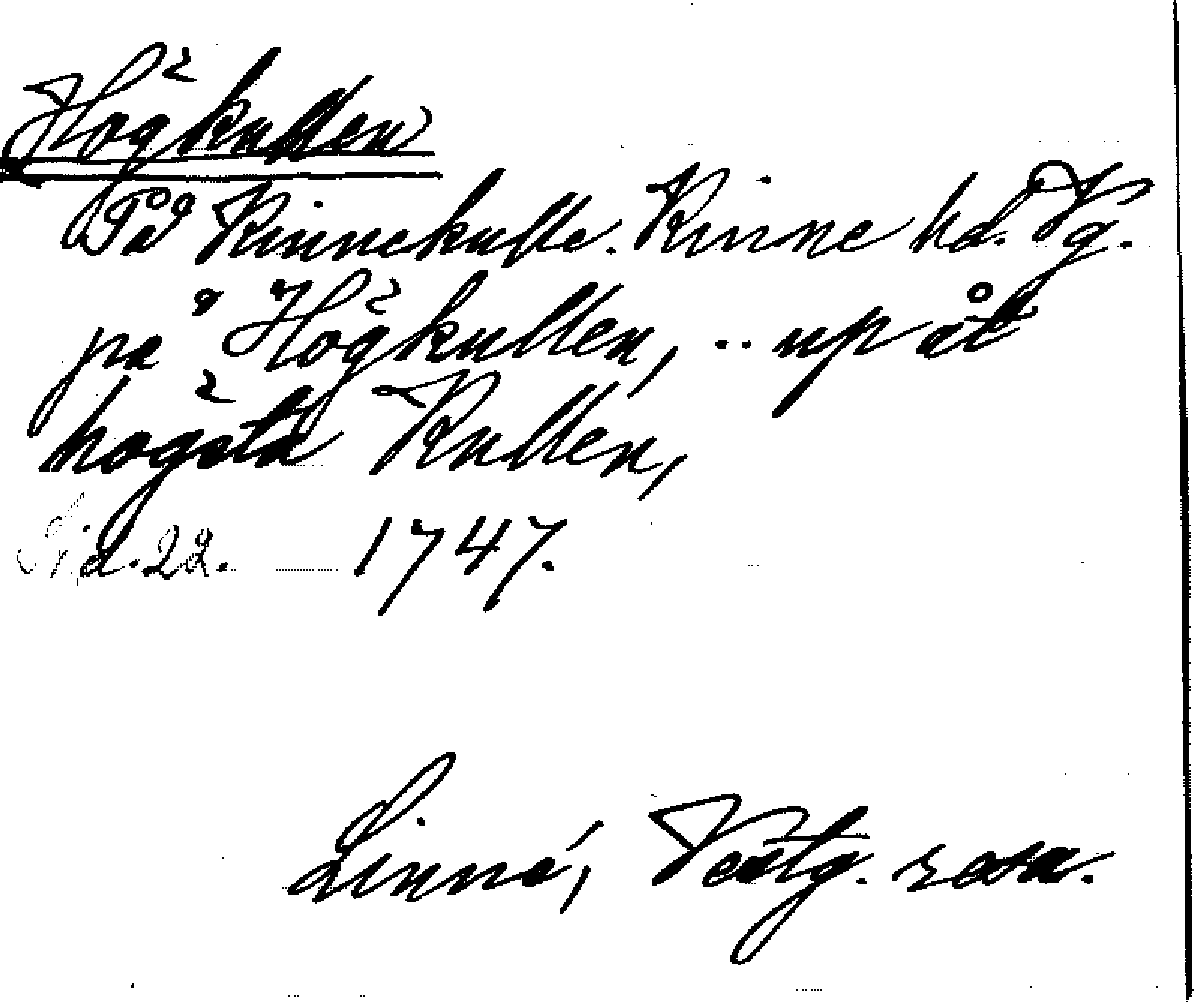 Högkullen
På Kinnekulle. Kinne hd. Vg.
på Högkullen, .. up åt
högsta Kullen,
Sid. 22. — 1747.
Linné, Vestg. resa.